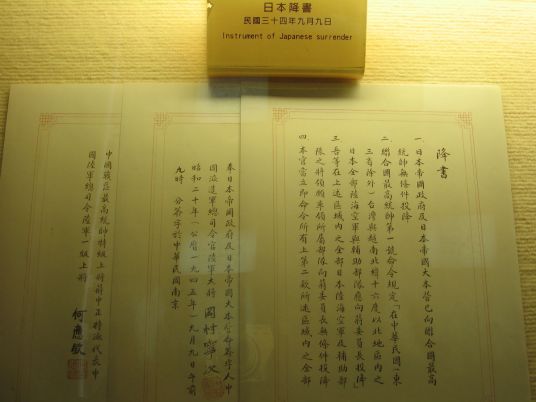 日本降書
民國三十四年九月九日
Instrument of Japanese surrender
降書
一、日本帝國政府及日本帝國大本營已向聯合國最高
統帥無條件投降
二、聯合國最高統帥第一號命令規定「在中華民國(東
三省除外)台灣與越南北緯十六度以北地區內之
日本全部陸海空軍與輔助部隊應向蔣委員長投降」
三、吾等在上述區域內之全部日本陸海空軍及輔助部
隊之將領願率領所屬部隊向蔣委員長無條件投降
四、本官當立即命令所有上第二款所述區域內之全部
奉日本帝國政府及日本帝國大本營命簽字人中
國派遣軍總司令官陸軍大將 岡村寧次
昭和二十年(公曆一九四五年)九月九日午前
九時 分簽字於中華民國南京
中國戰區最高統帥特級上將蔣中正特派代表中
國陸軍總司令陸軍一級上將
何應欽